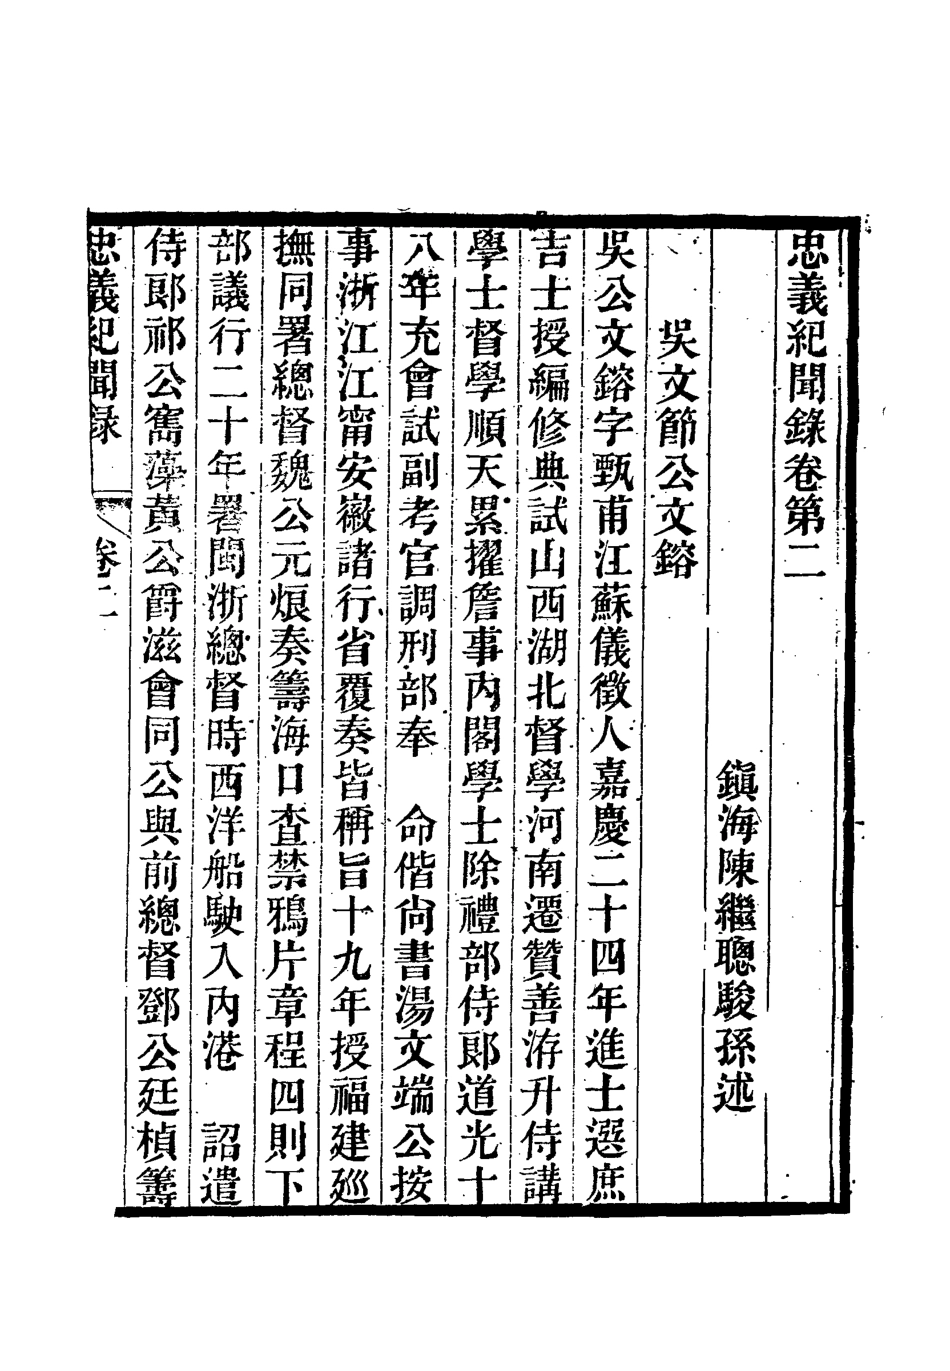 忠義紀聞錄卷第二
鎮海陳繼聰駿孫述
吳文節公文鎔
吳公文鎔字甄甫江蘇儀徵人嘉慶二十四年進士選庶
吉士授編修典試山西湖北督學河南遷贊善洊升侍講
學士督學順天累擢詹事內閣學士除禮部侍郞道光十
八年充會試副考官調刑部奉　命偕尙書湯文端公按
事浙江江甯安徽諸行省覆奏皆稱旨十九年授福建廵
撫同署總督魏公元烺奏籌海口查禁鴉片章程四則下
部議行二十年署閩浙總督時西洋船駛入內港　詔遣
侍郞祁公寯藻黃公爵滋會同公與前總督鄧公廷楨籌
忠義紀聞錄　卷二　一